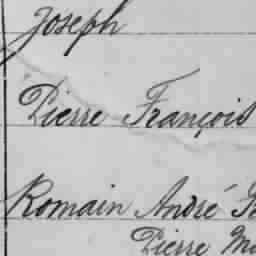 Joseph
Pierre François
Romain André
Pierre